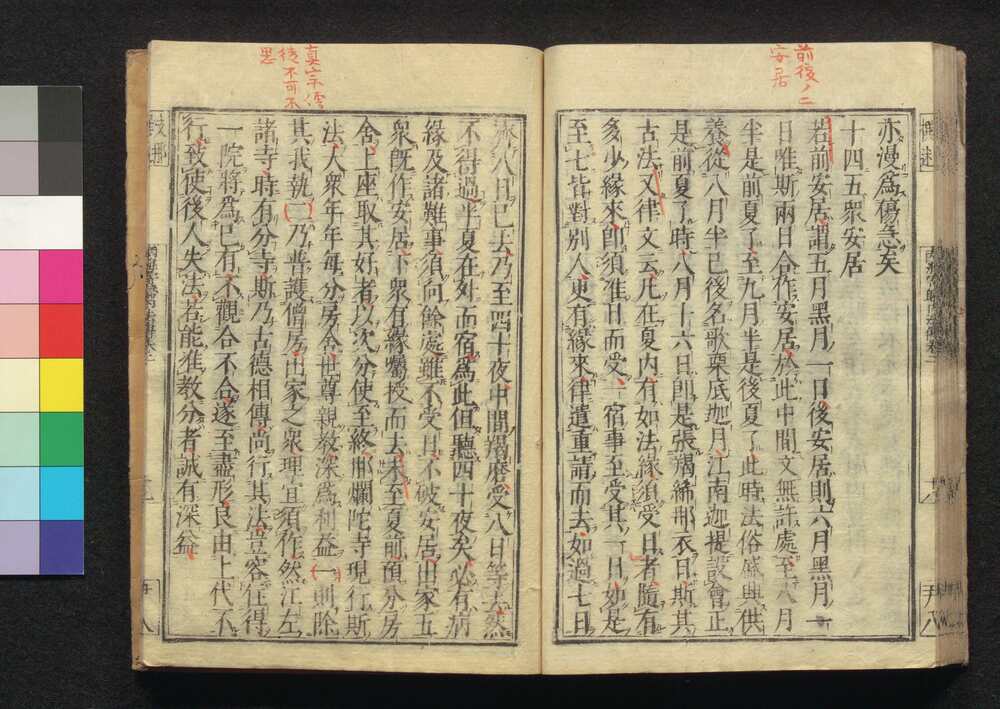 前後ノ二
安居
亦漫爲傷急矣
十四五衆安居
若前安居謂五月黑月一日後安居則六月黑月一
日唯斯兩日合作安居於此中間文無許處至八月
半是前夏了至九月半是後夏了此時法俗盛興供
養從八月半已後名歌栗底迦月江南迦提設會正
是前夏了時八月十六日卽是張羯絺那衣日斯其
古法又律文云凡在夏內有如法緣須受日者隨有
多少緣來卽須准日而受一宿事至受其一日如是
至七皆對別人更有緣來律遣重請而去如過七日
眞宗
徒不可不
思
八日已去乃至四十夜中間羯磨受八日等去然
不得過半夏在外而宿爲此但聽四十夜矣必有病
緣及諸難事須向餘處雖不受日不破安居出家五
衆旣作安居下衆有緣囑授而去未至夏前預分房
舍上座取其好者以次分使至終那爛陀寺現行斯
法大衆年年每分房舍世尊親敎深爲利益一則除
其我執二乃普護僧房出家之衆理宜須作然江左
諸寺時有分寺斯乃古德相傳尚行其法豈容住得
一院將爲已有不觀合不合遂至盡形良由上代不
行致使後人失法若能准敎分者誠有深益